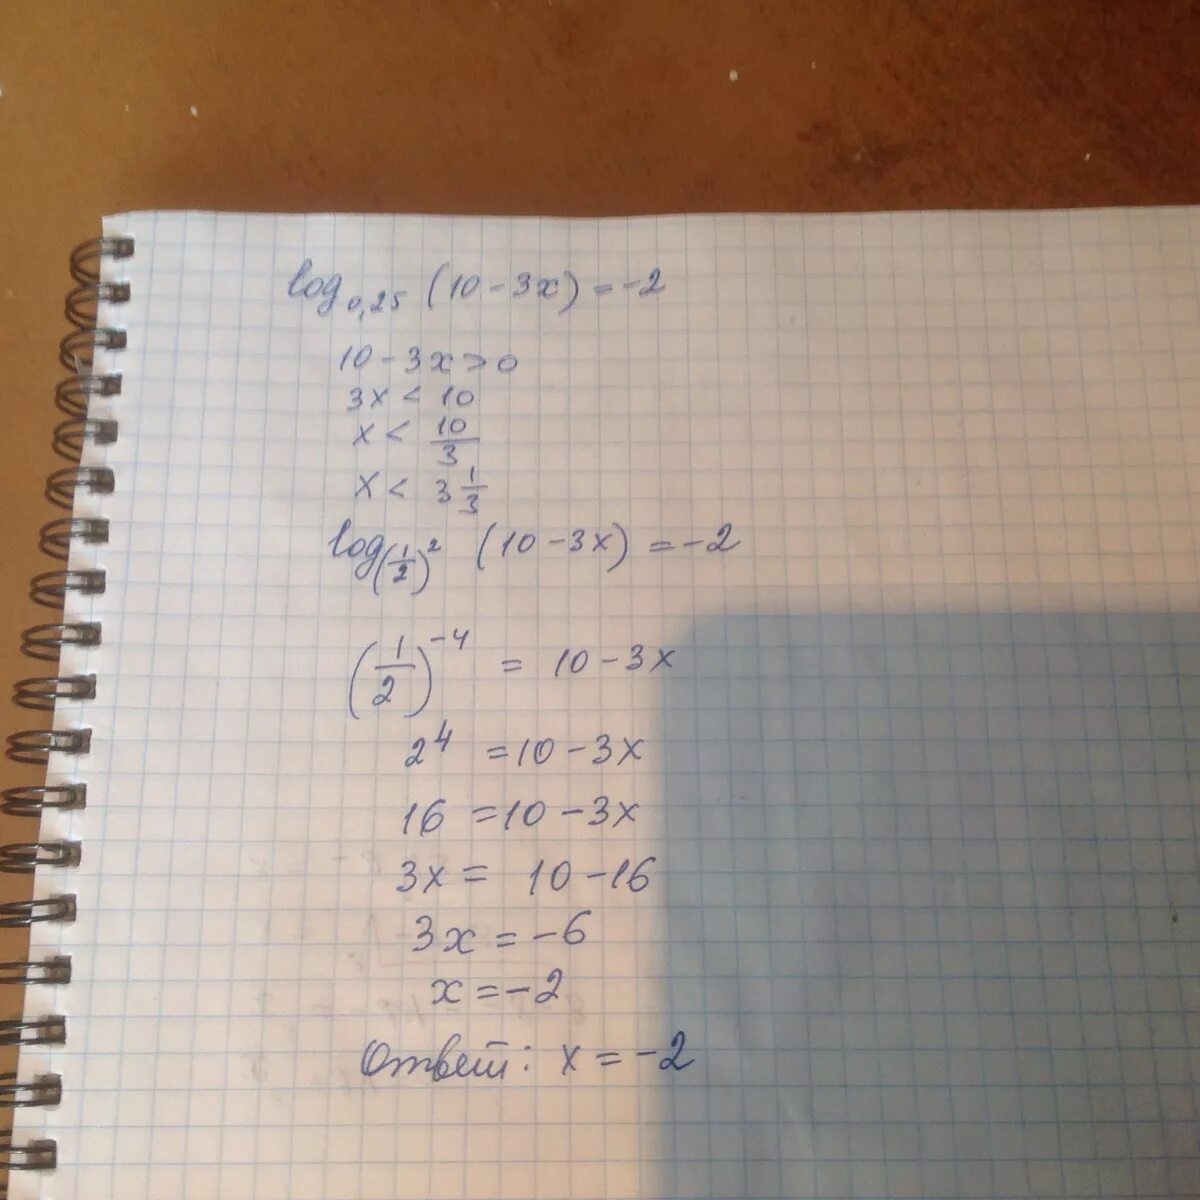 log₀,₂₅ (10 - 3x) = -2
10 - 3x > 0
3x < 10
x < 10/3
x < 3 1/3
log_(1/2)² (10 - 3x) = -2
(1/2)⁻⁴ = 10 - 3x
2⁴ = 10 - 3x
16 = 10 - 3x
3x = 10 - 16
3x = -6
x = -2
Ответ: x = -2